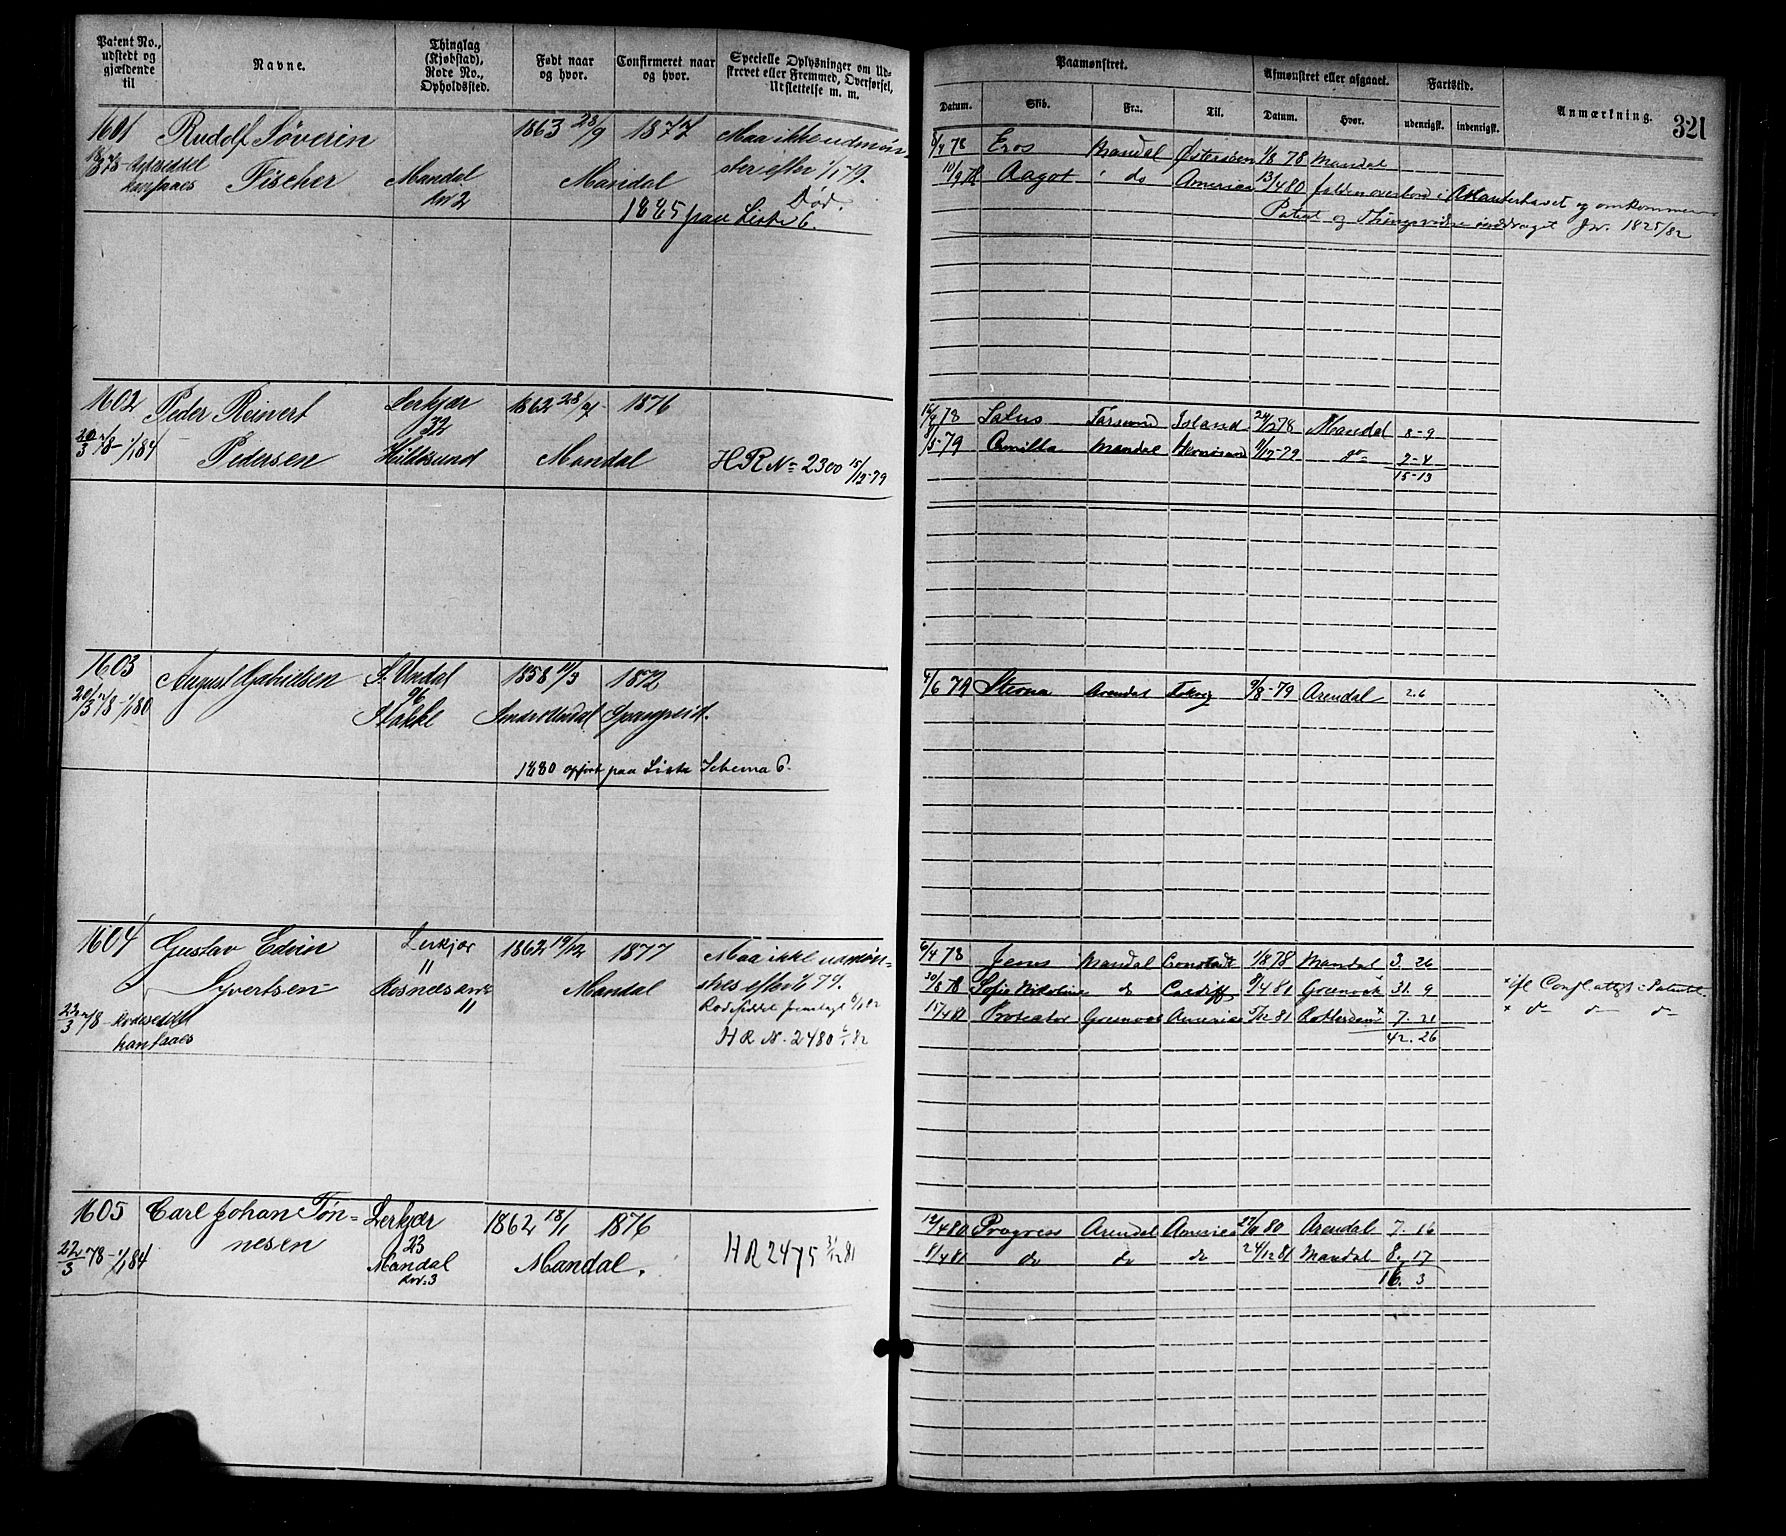 Patent No., udstedt og gjældende til
Navne.
Thinglag (Kjøbstad), Rode No., Opholdssted.
Født naar og hvor.
Confirmeret naar og hvor.
Specielle Oplysninger om Udskrevet eller Fremmed, Overførsel, Udslettelse m. m.
Paamønstret.
Datum.
Skib.
Fra:
Til.
Afmønstret eller afgaaet.
Datum.
Hvor.
Fartstid.
udenrigsk.
indenrigsk.
Anmærkning.
321
1601 Rudolf Søverin 1863 28/9 1877 Maa ikke udmøn-
Fischer Mandal Mandal stres efter 1/1 79.
kv 2 Død.
1885 paa Liste 6.
5/4 78 Eros Mandal Østersøen 1/8 78 Mandal
10/9 78 Aagot do America 13/4 80 falden overbord i Atlanterhavet og omkommen
Patent og inddraget Jr. 1825/82
1602 Peder Reinert Lerkjær 1862 1876
32
20/3 78-1/1 84 Pedersen Hillesund Mandal HR No 2300 15/12-79
78 Salus Island 78 Mandal 8-9
79 Camilla Mandal 11/12-79 do 7-4
15-13
1603 August Gabrielsen S. Undal 1858 11/3 1872
96
20/3 78-1/1 80 Stokke Spangereid.
1880 opført paa Liste Schema 6.
4/6 79 Sterna Arendal 9/8-79 Arendal 2.6
1604 Gustav Edvin Lerkjær 1862 19/12 1877 Maa ikke udmøn-
11
Syvertsen Mandal stres efter 1/1 79.
11
22/3 78- Rodeseddel HR No. 2480 82
6/4 78 Jens Mandal Cronstadt 1/8 78 Mandal 3. 26
30/ 78 Sofie Nikoline do Cardiff 9/4 81 Greenock 31. 9
15/4 81 Protector Greenock America 5/12 81 Rotterdam 7. 21
42. 26
1605 Carl Johan Tøn- Lerkjær 1862 18/1 1876
nesen 23 HR 2475 81
22/3 78-1/1 84 Mandal Mandal.
kv. 3
12/4 80 Progress Arendal America 80 Arendal 7. 16
8/4 81 do do do 24/12 81 Mandal 8. 17
16. 3